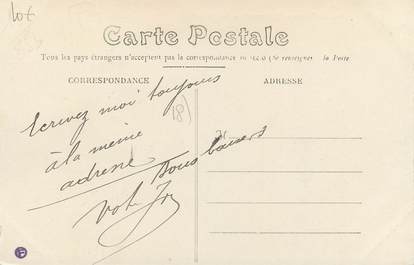 lot
Carte Postale
Tous les pays étrangers n'acceptent pas la correspondance au recto (Se renseigner à la Poste.
CORRESPONDANCE
ADRESSE
Ecrivez moi toujours
à la meme
adresse
18)
Bons baisers